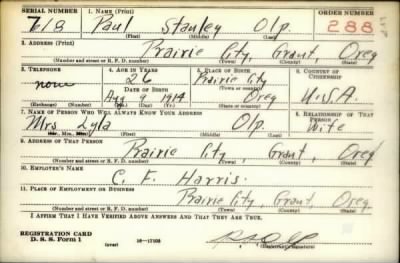 SERIAL NUMBER 1. NAME (Print) ORDER NUMBER
718 Paul Stanley Olp. 288
(First) (Middle) (Last)
2. ADDRESS (Print)
Prairie City, Grant, Oreg
(Number and street or R. F. D. number) (Town) (County) (State)
3. TELEPHONE 4. AGE IN YEARS 5. PLACE OF BIRTH 6. COUNTRY OF CITIZENSHIP
none 26 Prairie City
DATE OF BIRTH (Town or county)
Aug 1914 Oreg U.S.A.
(Exchange) (Number) (Mo.) (Day) (Yr.) (State or country)
7. NAME OF PERSON WHO WILL ALWAYS KNOW YOUR ADDRESS 8. RELATIONSHIP OF THAT PERSON
Mrs. Lyla Olp. Wife
(Mr., Mrs., Miss) (First) (Middle) (Last)
9. ADDRESS OF THAT PERSON
Prairie City, Grant, Oreg
(Number and street or R. F. D. number) (Town) (County) (State)
10. EMPLOYER'S NAME
C. F. Harris.
11. PLACE OF EMPLOYMENT OR BUSINESS
Prairie City, Grant, Oreg
(Number and street or R. F. D. number) (Town) (County) (State)
I AFFIRM THAT I HAVE VERIFIED ABOVE ANSWERS AND THAT THEY ARE TRUE.
REGISTRATION CARD
D. S. S. Form 1 (over) 16-17105
(Registrant's signature)